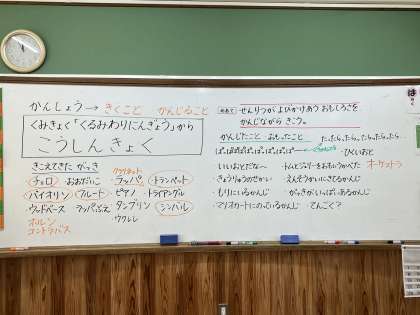 かんしょう→きくこと かんじること
くみきょく「くるみわりにんぎょう」から
こうしんきょく
きこえてきた がっき
クラリネット
チェロ おおだいこ ラッパ トランペット
バイオリン フルート ピアノ トライアングル
ウッドベース ラッパぶえ タンブリン シンバル
ホルン ウクレレ
コントラバス
めあて せんりつが よびかけあう おもしろさを
かんじながら きこう。
かんじたこと・おもったこと たったらったらったらったらっ
・ひくいおと
・いいおとだな〜 ・トムとジェリーをおもいうかべた オーケストラ
・きょうりゅうのせかい ・えんそうかいにきてるかんじ
・もりにいるかんじ ・がっきがいっぱいあるかんじ
・マリオカートにのっているかんじ ・てんごく?
は